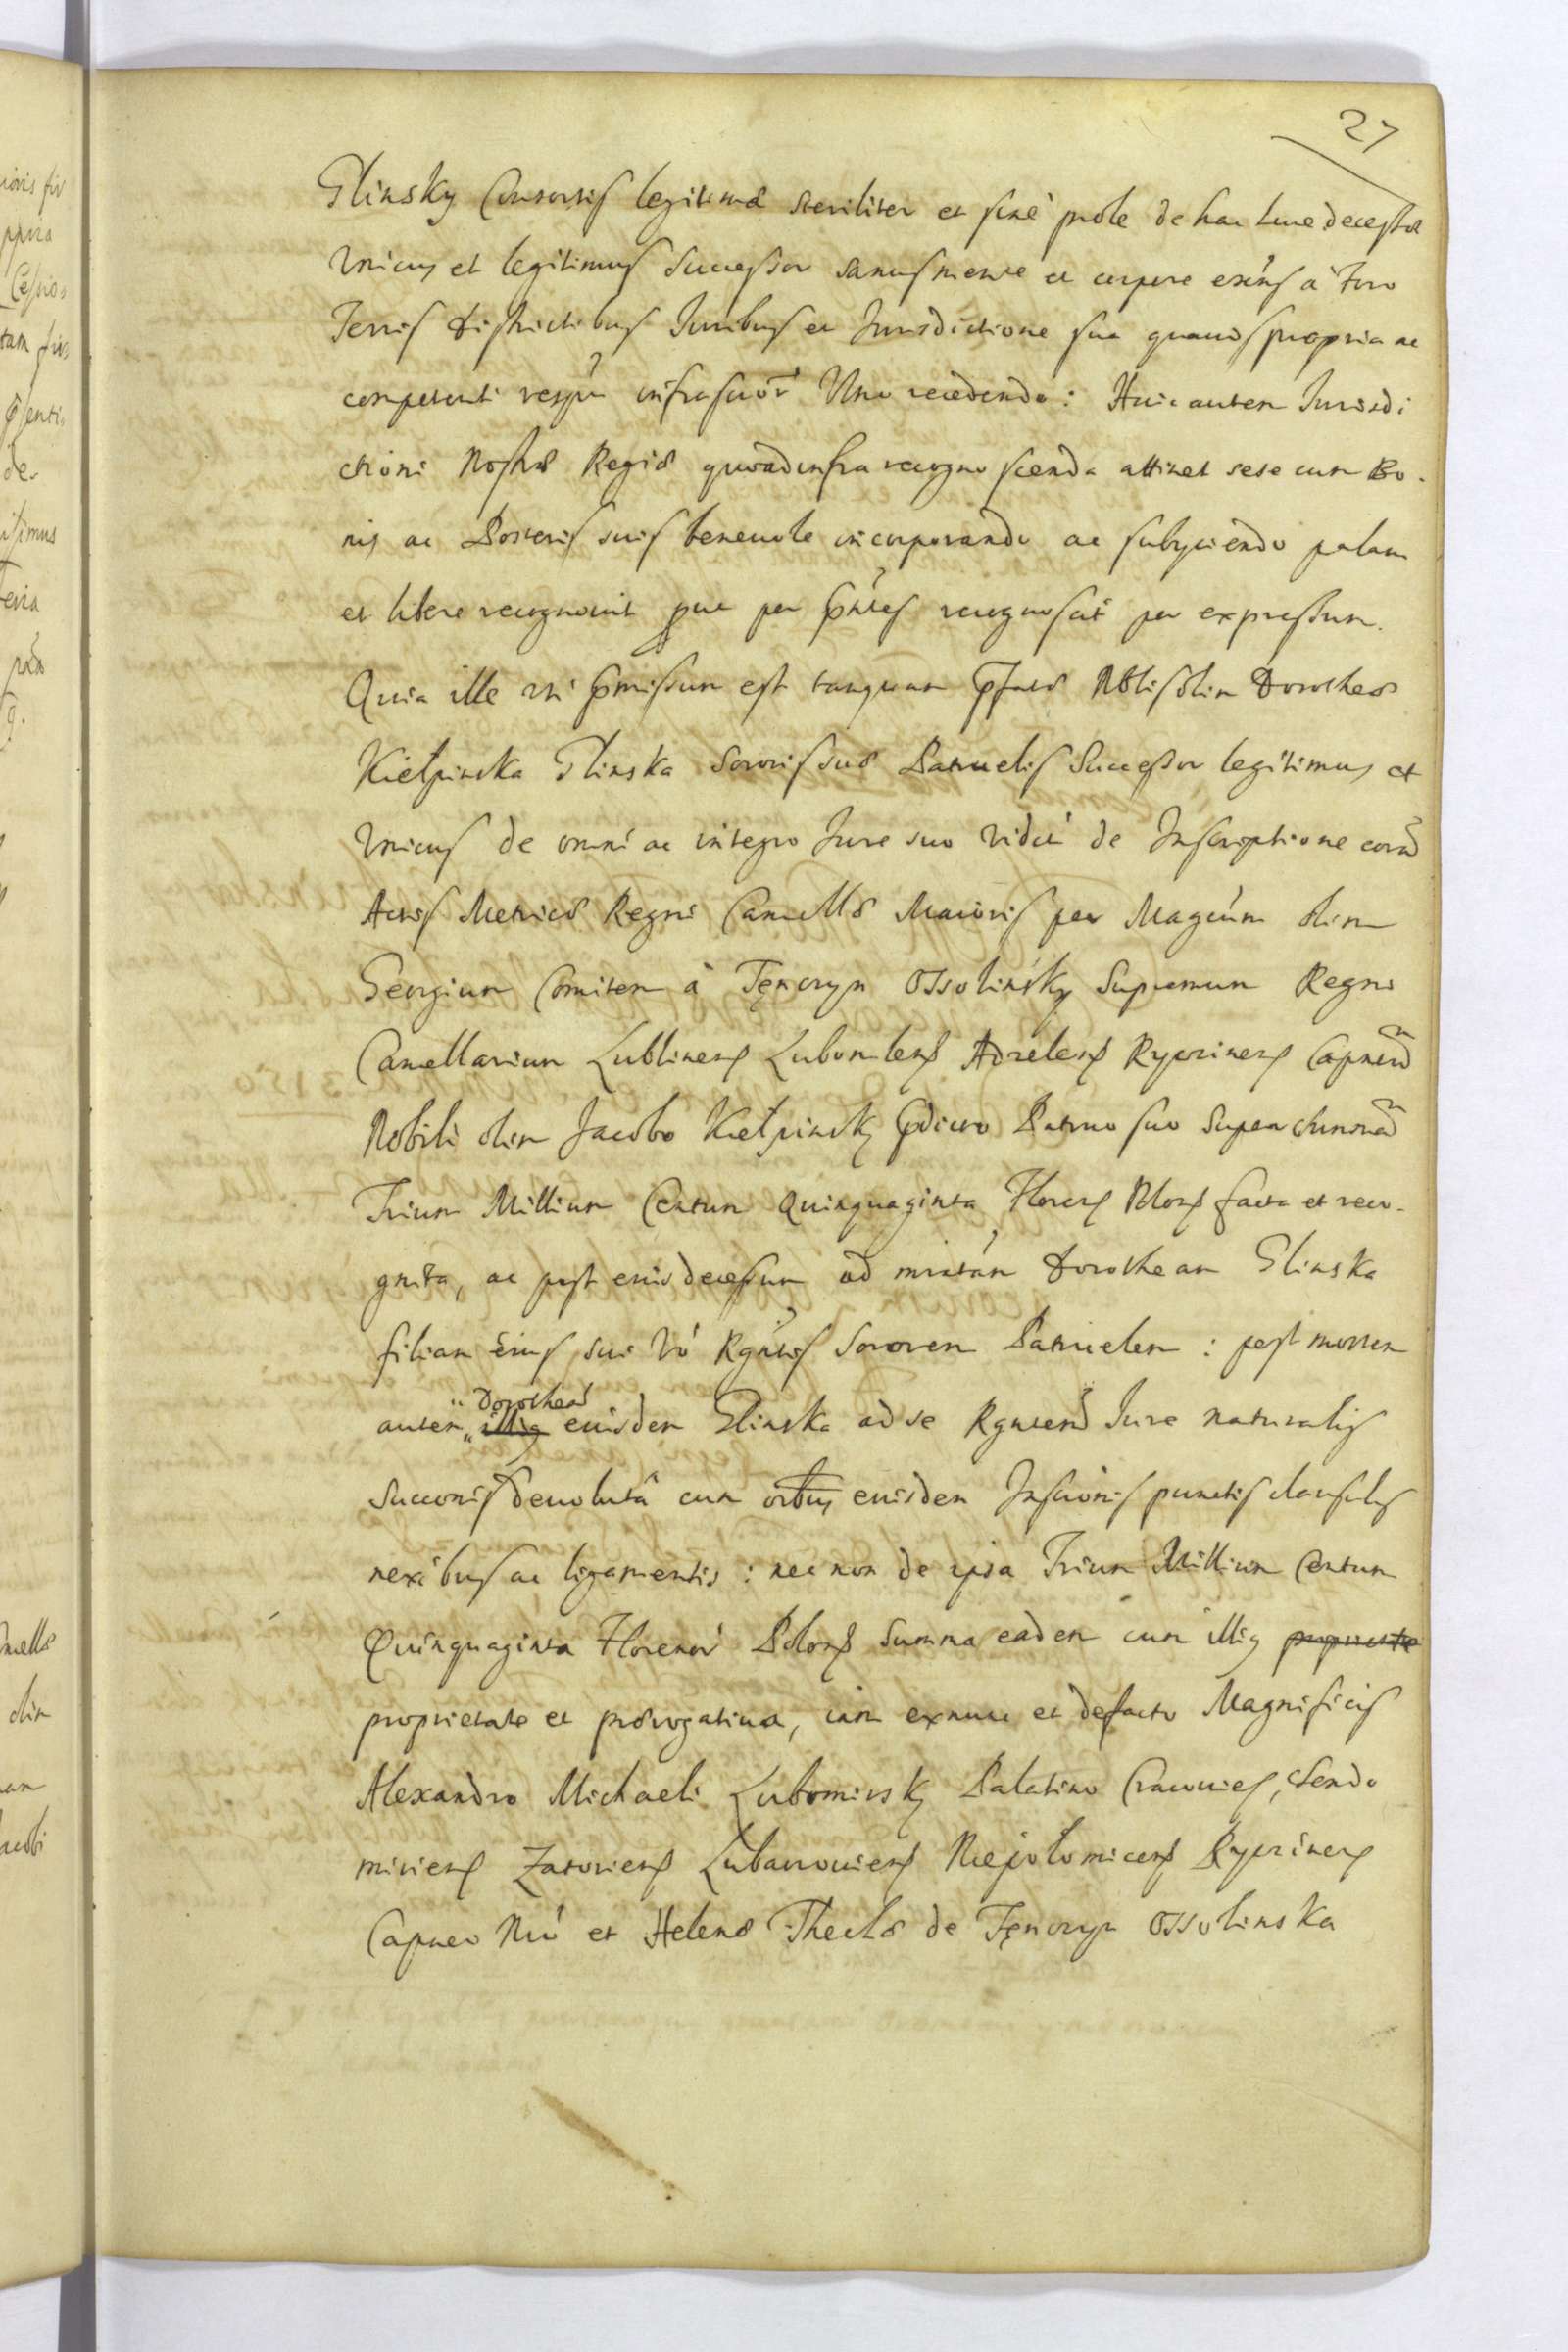 27
Glinsky Consortis legitimæ steriliter et sine prole de hac luce decessæ
Unicus et legitimus Successor sanus mente et corpore exēns à Foro
Terris Districtibus Iuribus et Iurisdictione sua quauis propria ac
competenti respu infrascrōr Uno recedendo: Huic autem Iurisdi
ctioni Nostræ Regiæ quoad infra recognoscenda attinet sese cum Bo-
nis ac Posteris suis beneuole incorporando ac subyciendo palam
et libere recognouit que per pn̄tes recognoscit per expressum.
Quia ille uti p̄missum est tanquam p̄fatæ Nblis olim Dorotheæ
Kiełpinska Glinska Sororis suæ Patruelis Successor legitimus et
Unicus de omni ac integro Iure suo videl de Inscriptione corā
Actis Metricæ Regni Cancellæ Maioris per Magcum olim
Georgium Comitem à Tęnczyn Ossolinsky Supremum Regni
Cancellarium Lublinens Lubomlens Adzelens Ryczinens Capneu
Nobili olim Jacobo Kiełpinsky p̄dicto Patruo suo Super Summā
Trium Millium Centum Quinquaginta Floren Polon facta et reco-
gnita, ac post eius decessum ad Dorotheam Glinska
filiam eius sui Vō Rgn̄tis Sororem Patruelem: post mortem
autem Dorotheæ illius eiusdem Glinska ad se Rgntem Iure naturalis
Succonis deuolutâ cum oībus eiusdem Inscrionis punctis clausulis
nexibus ac ligamentis: nec non de ipsa Trium Millium Centum
Quinquaginta Florenor Polon Summa eadem cum illius proprieate
proprietate et prærogatiua, iam exnunc et defacto Magnificis
Alexandro Michaeli Lubomirsky Palatino Cracouien, Sendo
mirien Zatorien Lubaczouien Niepołomicen Ryczinen
Capneo Nro et Helenæ Theclæ de Tęnczyn Ossolinska